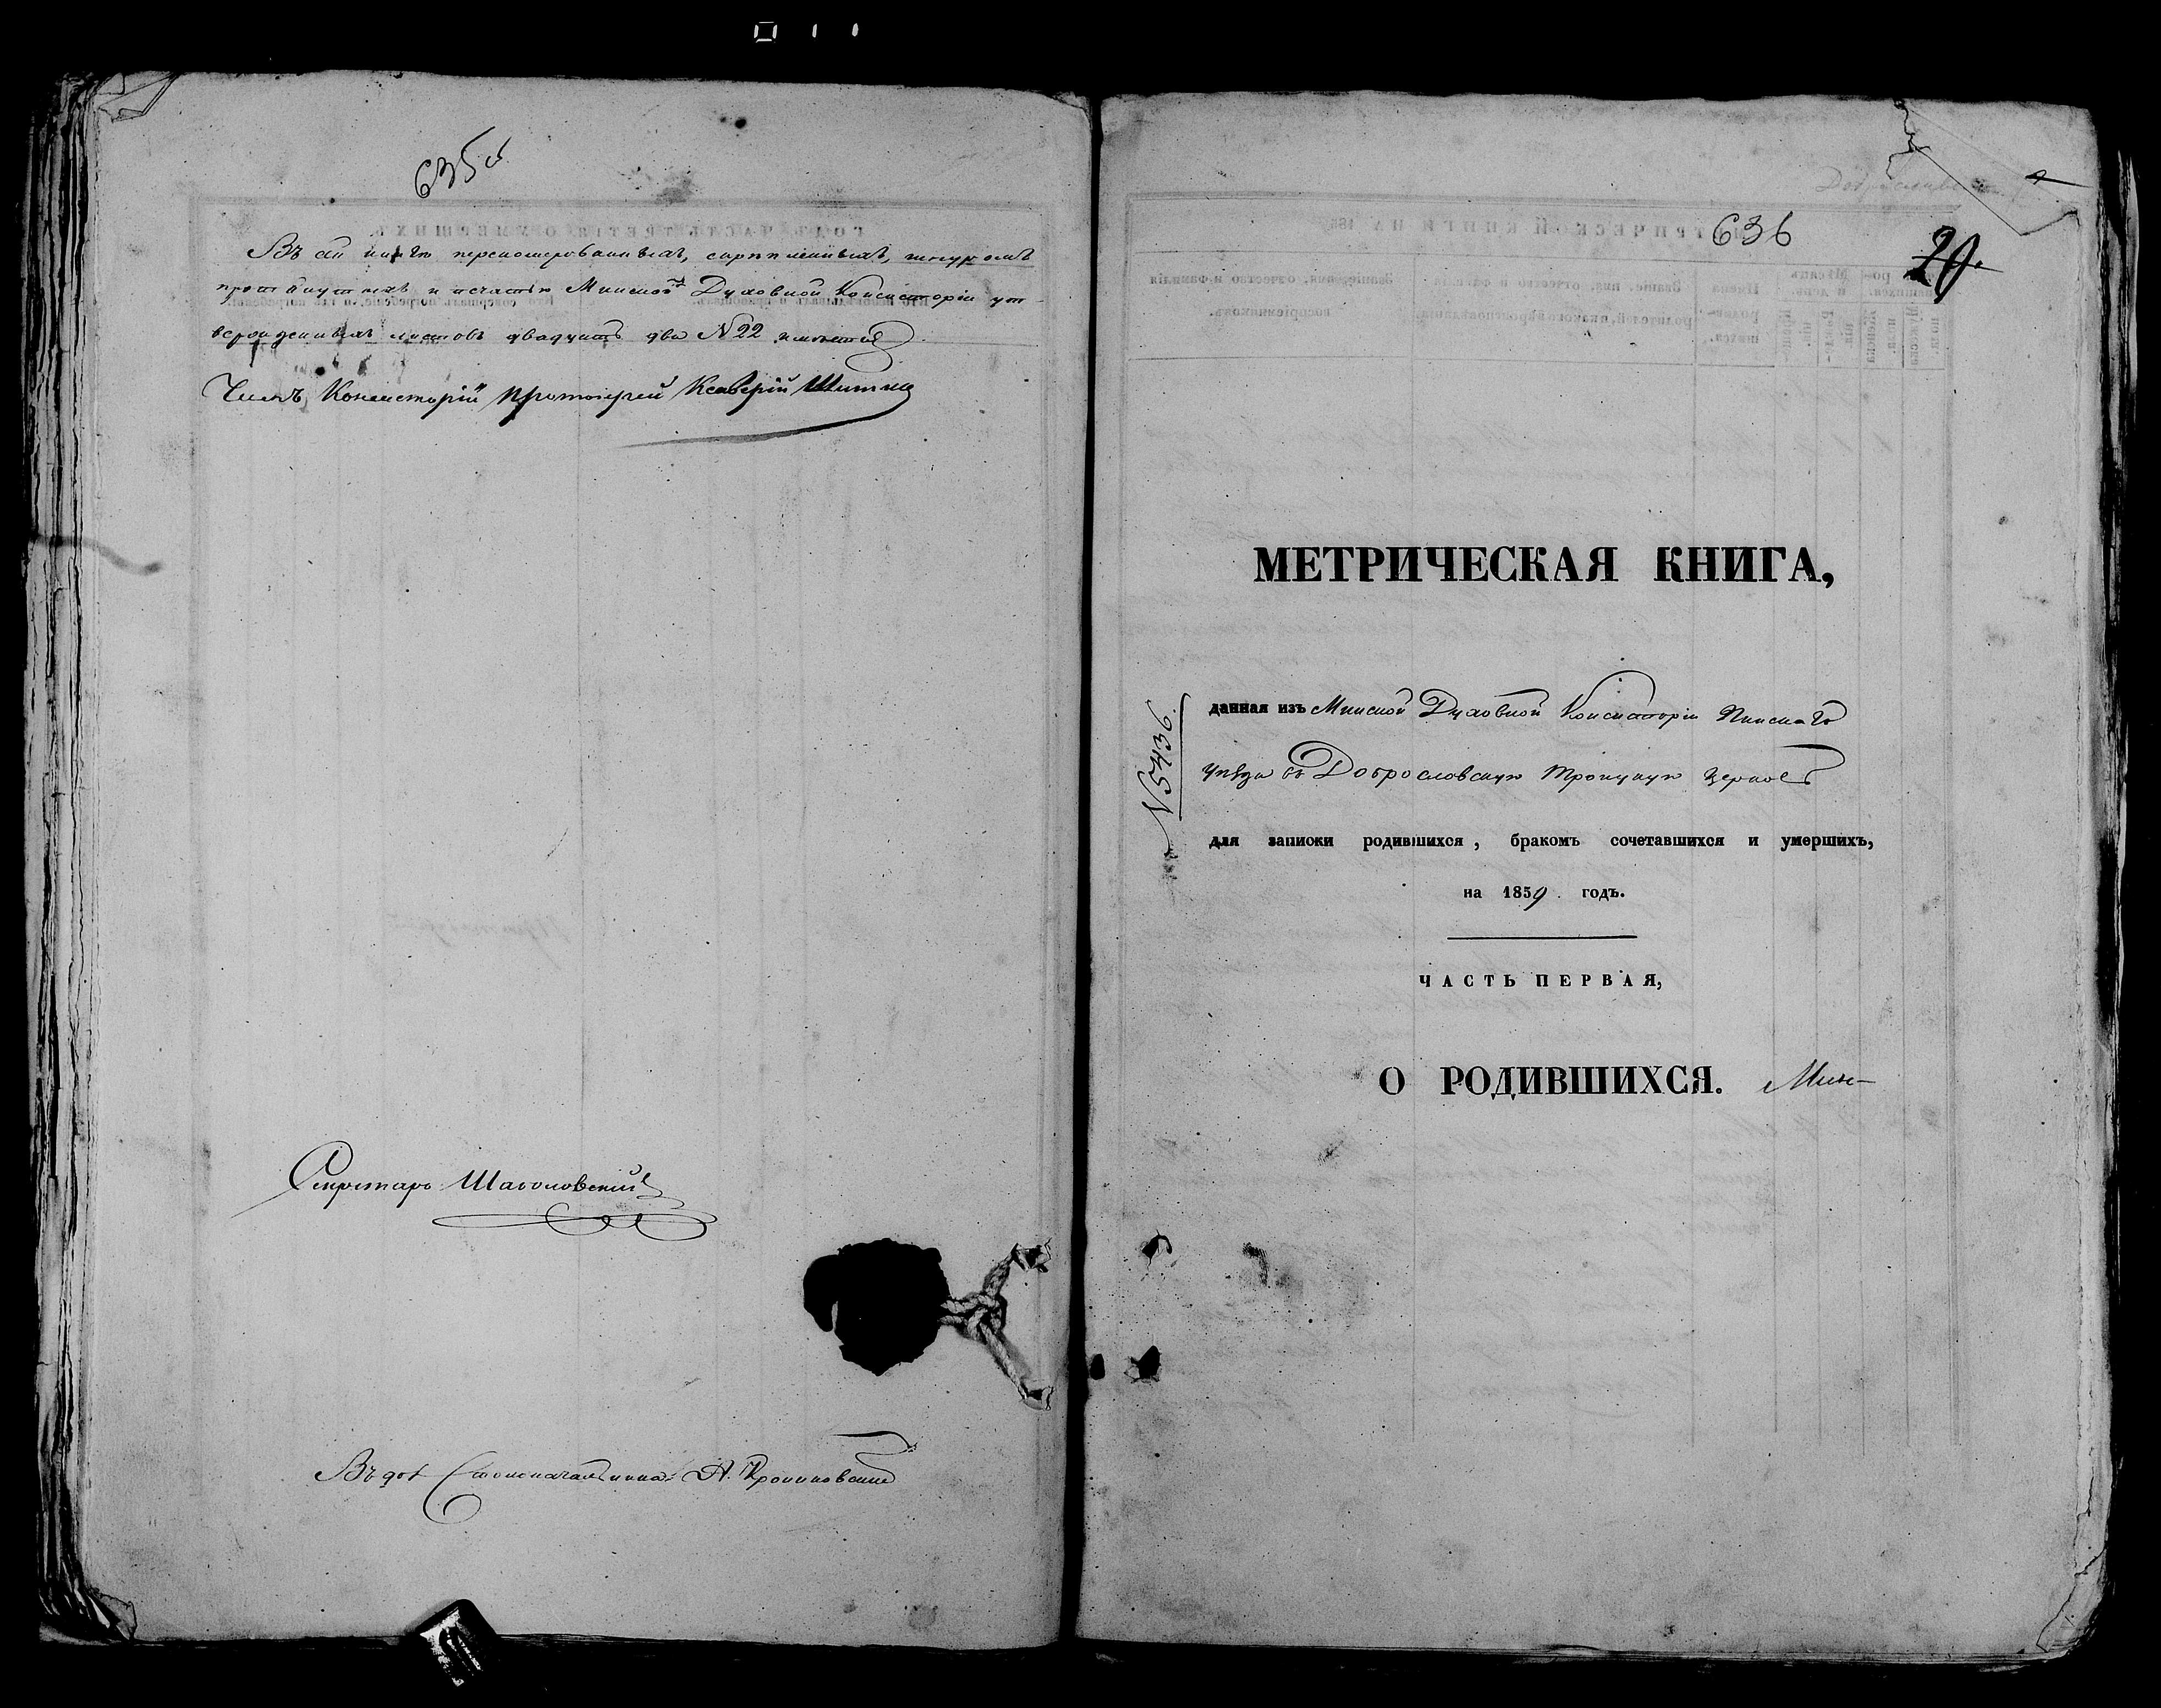 635 об
Въ сей книгѣ перенумерованныхъ, скрѣпленныхъ, шнуромъ
протянутыхъ и печатью Минской Духовной Консисторіи ут-
вержденныхъ листовъ двадцать два N 22 имѣется
Членъ Консисторіи Протоіерей Ксаверій
Секретарь
Въ дол. Столоначальника А.
636
20.
МЕТРИЧЕСКАЯ КНИГА,
N 5436.
данная изъ Минской Духовной Консисторіи Пинскаго
уѣзда въ Доброславскую Троицкую церковь
для записки родившихся, бракомъ сочетавшихся и умершихъ,
на 1859 годъ.
ЧАСТЬ ПЕРВАЯ,
О РОДИВШИХСЯ. Мин-